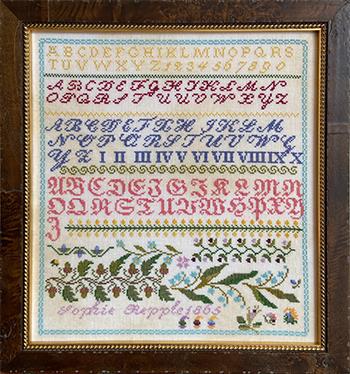 ABCDEFGHIKLMNOPQRS
TUVWXYZ1234567890
ABCDEFGHIKLMN
OPQRSTUVWXYZ
ABCDEFGHIKLM
NOPQRSTUVW
YZ I II III IV V VI VII VIII IX X
ABCDEFGIKLMN
OPQRSTUVWXY
Z
Sophie Repple 1865